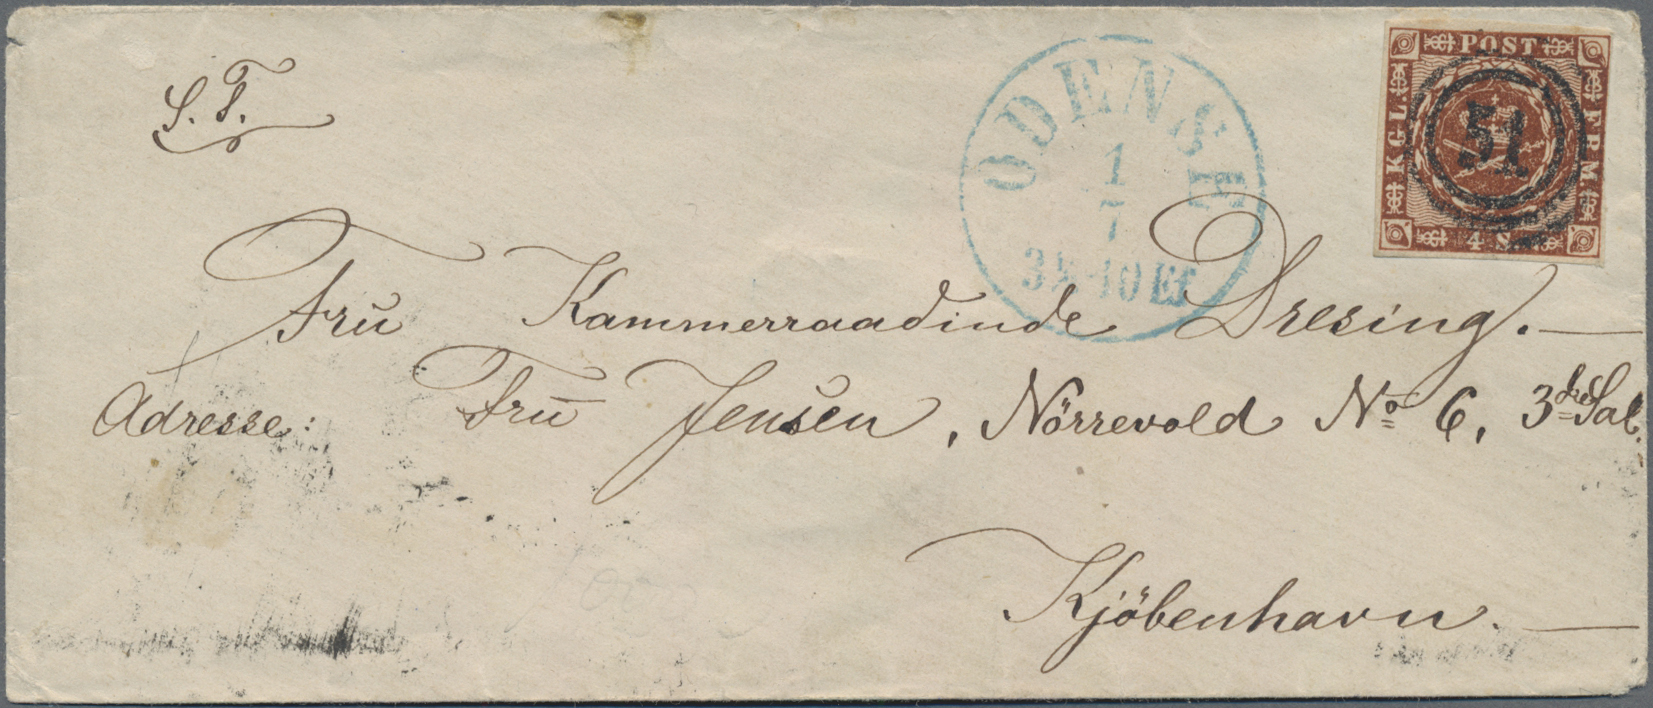 S. T.
ODENSE
1
7
POST
KGL
FRM
4 S
51
Fru Kammerraadinde Dresing. —
Adresse: Fru Jensen, Nörrevold No 6, 3die Sal.
Kjöbenhavn. —